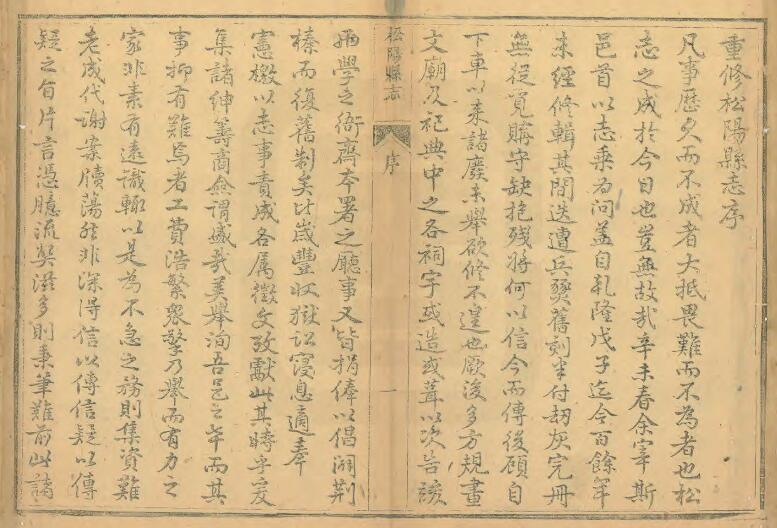 重修松陽縣志序
凡事歷久而不成者大抵畏難而不為者也松
志之成於今日也豈無故哉辛未春余宰斯
邑首以志乘為問蓋自乹隆戊子迄今百餘年
未經修輯其間迭遭兵燹舊刻半付刼灰完冊
無從覓購守缺抱殘將何以信今而傳後顧自
下車以來諸廢未舉欲修不遑也厥後多方規畫
文廟及祀典中之各祠宇或造或葺以次告竣
松陽縣志
序
一
兩學之衙齋本署之廳事又皆捐俸以倡闢荆
榛而復舊制矣比歲豐収獄訟寢息適奉
憲檄以志事責成各属徵文攷獻此其時乎爰
集諸紳籌商僉謂盛哉美舉洵吾邑之幸而其
事抑有難焉者工費浩繁衆擎乃舉而有力之
家非素有遠識輙以是為不急之務則集資難
老成代謝案牘蕩然非深得信以傳信疑以傳
疑之旨片言憑臆流獘滋多則秉筆難前此議